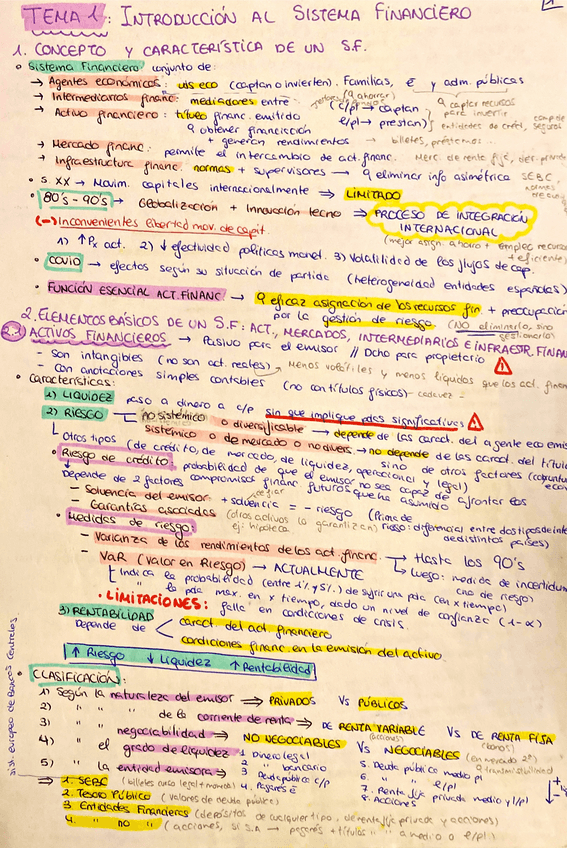 TEMA 1: INTRODUCCIÓN AL SISTEMA FINANCIERO
1. CONCEPTO Y CARACTERÍSTICA DE UN S.F.
• Sistema Financiero: conjunto de:
→ Agentes económicos: uds eco (captan o invierten). Familias, € y adm. públicas
→ Intermediarios financ: mediadores entre (c/pl → captan
(q ahorrar)
e/pl → prestan)
q captar recursos para invertir
entidades de créd,
seguros
→ Activo financiero: título financ. emitido
q obtener financiación
+ generan rendimientos → billetes, préstamos...
→ Mercado financ: permite el intercambio de act. financ. Merc. de renta fija,
→ Infraestructura financ: normas + supervisores → q eliminar info asimétrica SEBC,
normas
• S. XX → Movim. capitales internacionalmente ⇒ LIMITADO
• 80's - 90's → Globalización + Innovación tecno ⇒ PROCESO DE INTEGRACIÓN
INTERNACIONAL
(mejor asign. ahorro + empleo recursos
+ eficiente)
(-) Inconvenientes libertad mov. de capit.
1) ↑ Px act. 2) ↓ efectividad políticas monet. 3) Volatilidad de los flujos de cap.
• COVID → efectos según su situación de partida (heterogeneidad entidades españolas)
• FUNCIÓN ESENCIAL ACT. FINANC → q eficaz asignación de los recursos fin + preocupación
por la gestión de riesgo. (NO eliminarlo, sino
gestionarlo)
2. ELEMENTOS BÁSICOS DE UN S.F: ACT., MERCADOS, INTERMEDIARIOS E INFRAESTR. FINAN
2.1 ACTIVOS FINANCIEROS → Pasivo para el emisor // Dcho para propietario
- Son intangibles (no son act. reales) → Menos volátiles y menos líquidos que los act. financ
- Con anotaciones simples contables (no con títulos físicos)
• Características:
1) LIQUIDEZ paso a dinero a c/p sin que implique pdas significativas
2) RIESGO no sistémico o diversificable → depende de las caract. del agente eco emis
sistémico o de mercado o no divers. → no depende de las caract. del título
sino de otros factores (coyuntura
econ
Otros tipos (de crédito, de mercado, de liquidez, operacional y legal)
• Riesgo de crédito: probabilidad de que el emisor no sea capaz de afrontar los
compromisos financ futuros que ha asumido
Depende de 2 factores
- Solvencia del emisor + solvencia = - riesgo (Prima de
riesgo: diferencial entre dos tipos de inte
de distintos países)
- Garantías asociadas (otros activos lo garantizan)
ej: hipoteca
• Medidas de riesgo:
- Varianza de los rendimientos de los act. financ. → Hasta los 90's
→ Luego: medida de incertidum
(no de riesgo)
- VaR (Valor en Riesgo) → ACTUALMENTE
Indica la probabilidad (entre 1% y 5%) de sufrir una pda (en x tiempo)
" la pda max. en x tiempo, dado un nivel de confianza (1-α)
• LIMITACIONES: falla en condiciones de crisis.
3) RENTABILIDAD
Depende de caract. del act. financiero
condiciones financ. en la emisión del activo.
↑ Riesgo ↓ Liquidez ↑ Rentabilidad
• CLASIFICACIÓN:
1) Según la naturaleza del emisor ⇒ PRIVADOS VS PÚBLICOS
2) " " de la corriente de renta ⇒ DE RENTA VARIABLE VS DE RENTA FIJA
(acciones) (bonos)
3) " " negociabilidad ⇒ NO NEGOCIABLES VS NEGOCIABLES (en mercado 2º)
q transmisibilidad
4) " el grado de liquidez 1. Dinero legal
2. " bancario
3. Deuda público c/p
4. Pagarés €
5. Deuda público medio pl
6. " " l/pl
7. Renta fija privada medio y l/pl
8. Acciones
5) " la entidad emisora ⇒
⇒ 1. SEBC (billetes curso legal + moneda)
2. Tesoro Público (valores de deuda pública)
3 Entidades Financieras (depósitos de cualquier tipo, de renta fija privada y acciones)
4. " no " (acciones, si S.A → pagarés + títulos " " a medio o l/pl)
Sist. europeo de Bancos Centrales